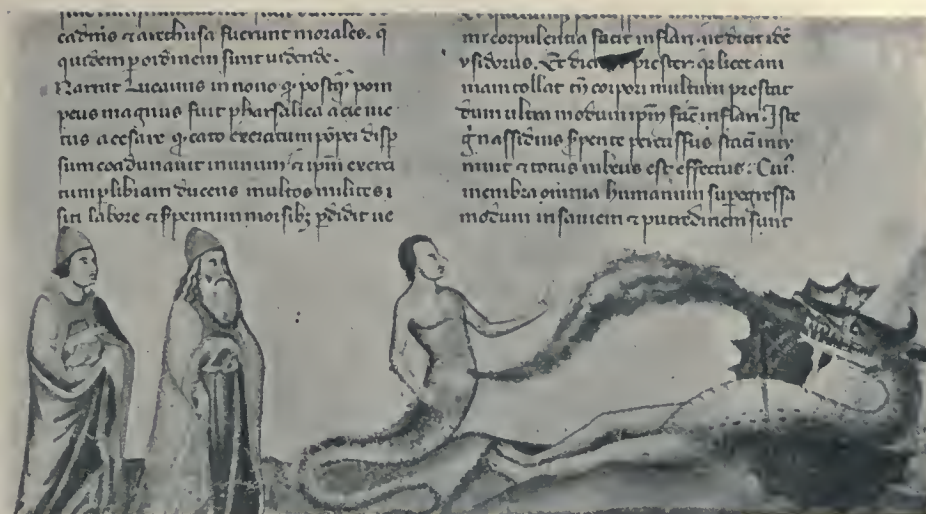 cadmus et arethusa fuerunt morales. q̄
quidem p ordinem sunt uidende.
Narrat Lucanus in nono q̄ postq̄ pom
peus magnus fuit pharsalica acie uic
tus a cesare q̄ cato exercitum pōpei disp
sum coadunauit in unum et ipm̄ exerci
tum p libiam ducens multos milites i
siti labore et serpentium morsibȝ pdidit ue
mr corpulentia facit inflari. ut dicit idē
ysidorus. Et prester. q̄ licet ani
mam tollat tn̄ corpori multum prestat
dum ultra modum ipm̄ facit inflari. Iste
g̊ nassidius serpente percussus statī intu
muit et totus rubeus est effectus. Cui9
membra omnia humanum supergressa
modum in saniem et putredinem sunt